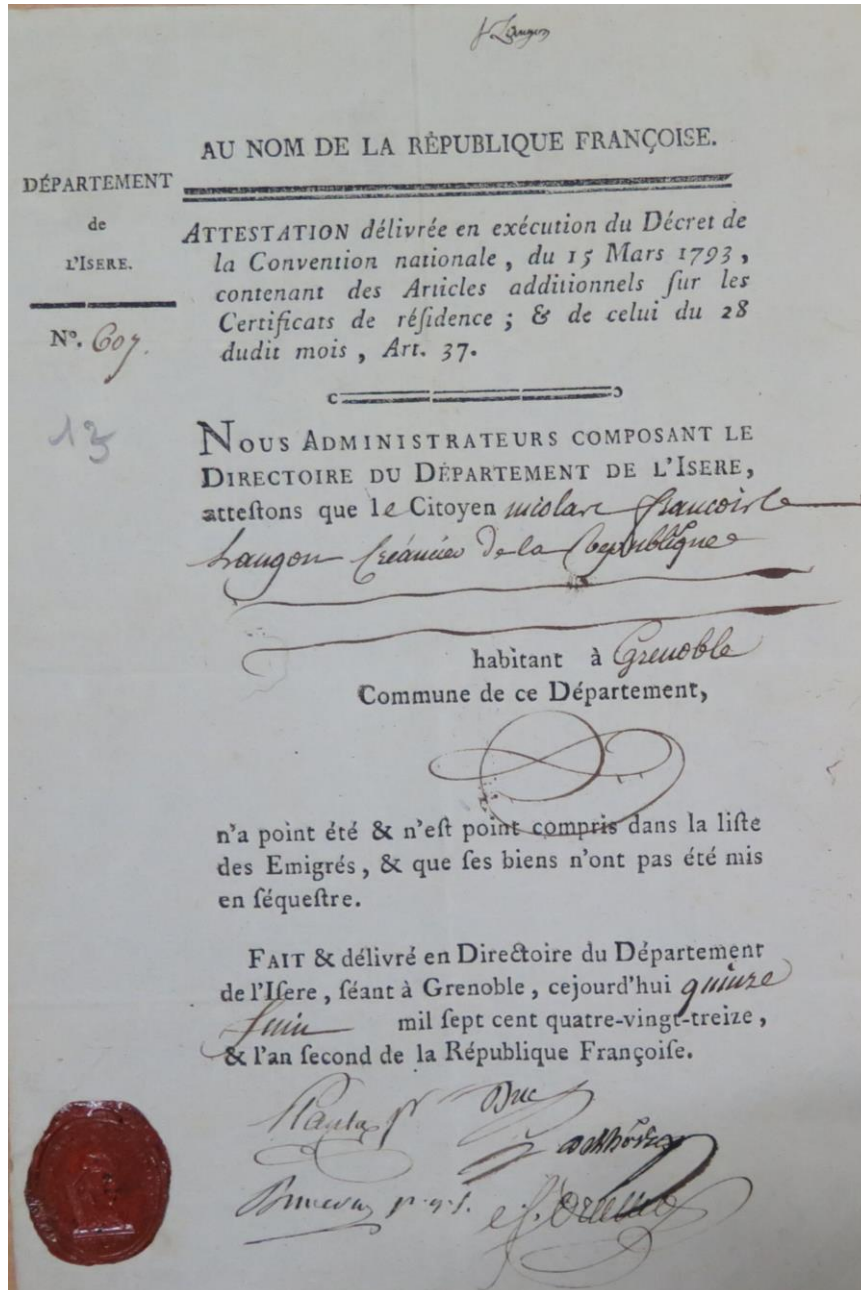 Langon
AU NOM DE LA RÉPUBLIQUE FRANÇOISE.
DÉPARTEMENT
de
L'ISERE.
N°. 607.
13
ATTESTATION délivrée en exécution du Décret de
la Convention nationale, du 15 Mars 1793,
contenant des Articles additionnels ſur les
Certificats de réſidence ; & de celui du 28
dudit mois, Art. 37.
NOUS ADMINISTRATEURS COMPOSANT LE
DIRECTOIRE DU DÉPARTEMENT DE L'ISERE,
atteſtons que le Citoyen nicolas francois
Langon Créancier De la Republique
habitant à Grenoble
Commune de ce Département,
n'a point été & n'eſt point compris dans la liſte
des Emigrés, & que ſes biens n'ont pas été mis
en ſéqueſtre.
FAIT & délivré en Directoire du Département
de l'Iſere, ſéant à Grenoble, cejourd'hui quinze
Juin mil ſept cent quatre-vingt-treize,
& l'an ſecond de la République Françoiſe.
Planta
Duc